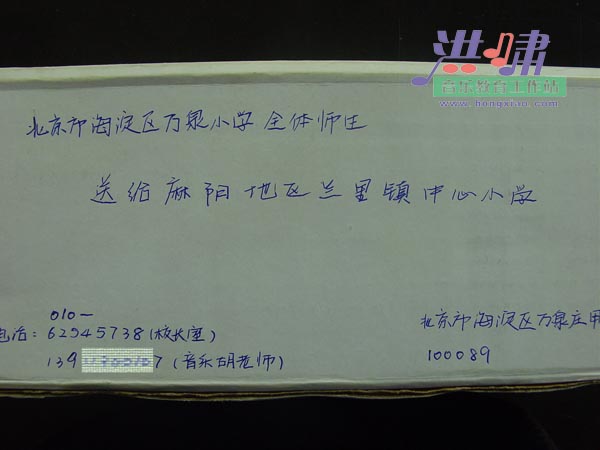 洪啸
音乐教育工作站
www.hongxiao.com
北京市海淀区万泉小学全体师生
送给麻阳地区兰里镇中心小学
010-
电话:62545738(校长室)
139 7(音乐胡老师)
北京市海淀区万泉庄甲
100089